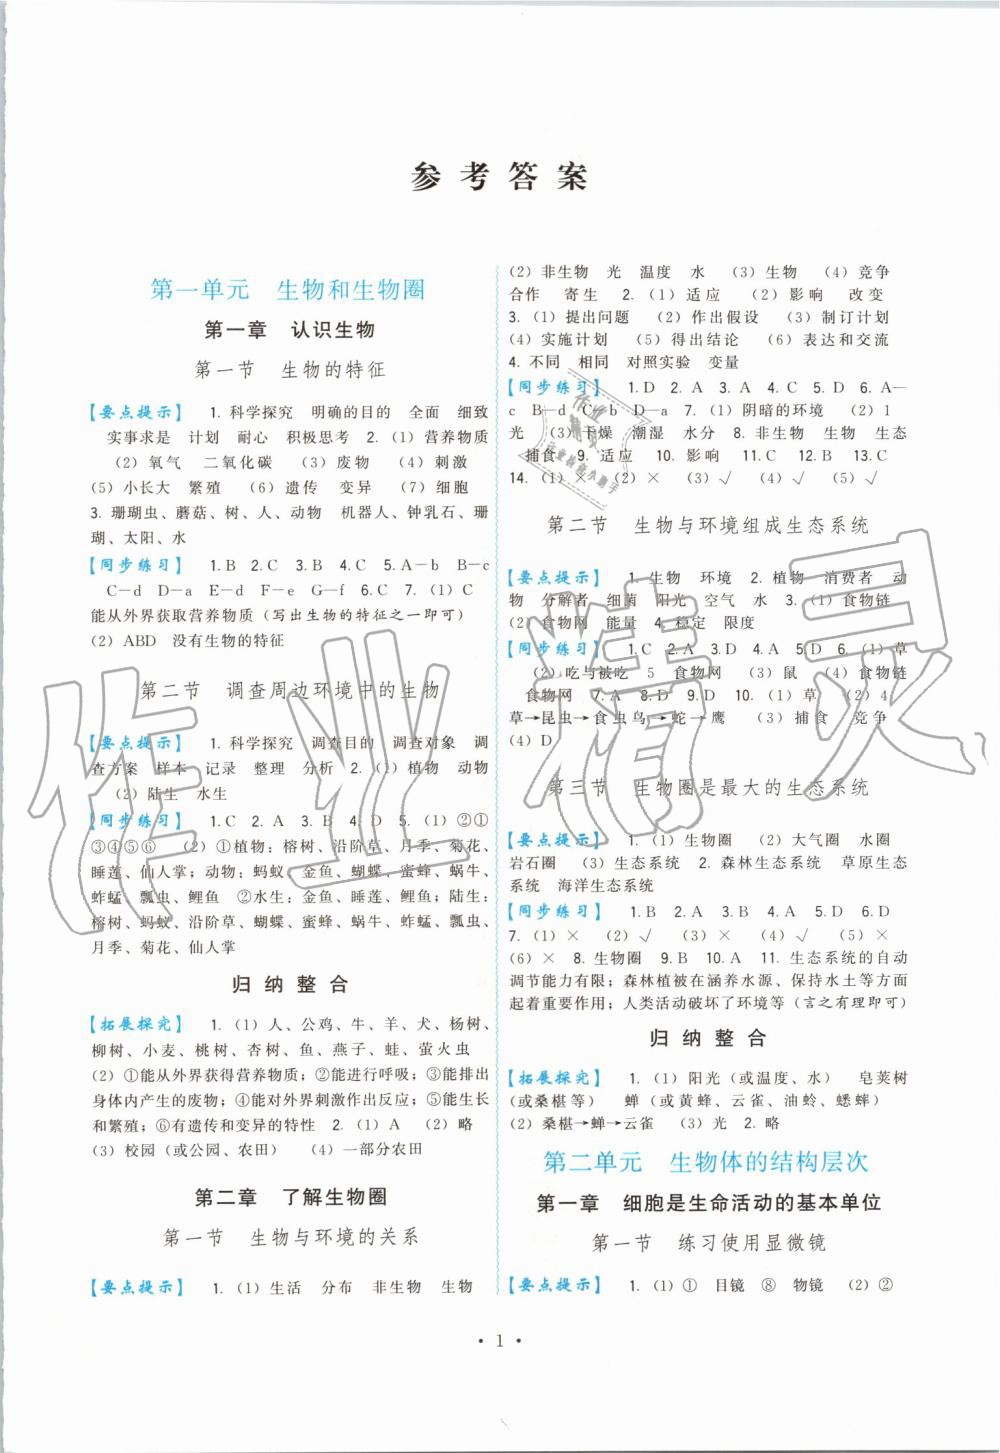 参考答案
第一单元 生物和生物圈
第一章 认识生物
第一节 生物的特征
【要点提示】 1. 科学探究 明确的目的 全面 细致
实事求是 计划 耐心 积极思考 2. (1) 营养物质
(2) 氧气 二氧化碳 (3) 废物 (4) 刺激
(5) 小长大 繁殖 (6) 遗传 变异 (7) 细胞
3. 珊瑚虫、蘑菇、树、人、动物 机器人、钟乳石、珊
瑚、太阳、水
【同步练习】 1. B 2. C 3. B 4. C 5. A—b B—c
C—d D—a E—f F—e G—f 6. C 7. (1) C
能从外界获取营养物质(写出生物的特征之一即可)
(2) ABD 没有生物的特征
第二节 调查周边环境中的生物
【要点提示】 1. 科学探究 调查目的 调查对象 调
查方案 样本 记录 整理 分析 2. (1) 植物 动物
(2) 陆生 水生
【同步练习】 1. C 2. A 3. B 4. D 5. (1) ②①
③④⑤⑥ (2) ①植物:榕树、沿阶草、月季、菊花、
睡莲、仙人掌;动物:蚂蚁、金鱼、蝴蝶、蜜蜂、蜗牛、
蚱蜢、瓢虫、鲤鱼 ②水生:金鱼、睡莲、鲤鱼;陆生:
榕树、蚂蚁、沿阶草、蝴蝶、蜜蜂、蜗牛、蚱蜢、瓢虫、
月季、菊花、仙人掌
归纳整合
【拓展探究】 1. (1) 人、公鸡、牛、羊、犬、杨树、
柳树、小麦、桃树、杏树、鱼、燕子、蛙、萤火虫
(2) ①能从外界获得营养物质;②能进行呼吸;③能排出
身体内产生的废物;④能对外界刺激作出反应;⑤能生长
和繁殖;⑥有遗传和变异的特性 2. (1) A (2) 略
(3) 校园(或公园、农田) (4) 一部分农田
第二章 了解生物圈
第一节 生物与环境的关系
【要点提示】 1. (1) 生活 分布 非生物 生物
(2) 非生物 光 温度 水 (3) 生物 (4) 竞争
合作 寄生 2. (1) 适应 (2) 影响 改变
3. (1) 提出问题 (2) 作出假设 (3) 制订计划
(4) 实施计划 (5) 得出结论 (6) 表达和交流
4. 不同 相同 对照实验 变量
【同步练习】 1. D 2. A 3. A 4. C 5. D 6. A—
c B—d C—b D—a 7. (1) 阴暗的环境 (2) 1
光 (3) 干燥 潮湿 水分 8. 非生物 生物 生态
捕食 9. 适应 10. 影响 11. C 12. B 13. C
14. (1) × (2) × (3) √ (4) × (5) √
第二节 生物与环境组成生态系统
【要点提示】 1. 生物 环境 2. 植物 消费者 动
物 分解者 细菌 阳光 空气 水 3. (1) 食物链
(2) 食物网 能量 4. 稳定 限度
【同步练习】 1. C 2. B 3. D 4. A 5. D 6. (1) 草
(2) 吃与被吃 5 食物网 (3) 鼠 (4) 食物链
食物网 7. A 8. D 9. D 10. (1) 草 (2) 4
草→昆虫→食虫鸟→蛇→鹰 (3) 捕食 竞争
(4) D
第三节 生物圈是最大的生态系统
【要点提示】 1. (1) 生物圈 (2) 大气圈 水圈
岩石圈 (3) 生态系统 2. 森林生态系统 草原生态
系统 海洋生态系统
【同步练习】 1. B 2. A 3. C 4. A 5. D 6. D
7. (1) × (2) √ (3) × (4) × (5) √
(6) × 8. 生物圈 9. B 10. A 11. 生态系统的自动
调节能力有限;森林植被在涵养水源、保持水土等方面
起着重要作用;人类活动破坏了环境等(言之有理即可)
归纳整合
【拓展探究】 1. (1) 阳光(或温度、水) 皂荚树
(或桑椹等) 蝉(或黄蜂、云雀、油蛉、蟋蟀)
(2) 桑椹→蝉→云雀 (3) 光 2. 略
第二单元 生物体的结构层次
第一章 细胞是生命活动的基本单位
第一节 练习使用显微镜
【要点提示】 1. (1) ① 目镜 ⑧ 物镜 (2) ②
· 1 ·
作业精灵